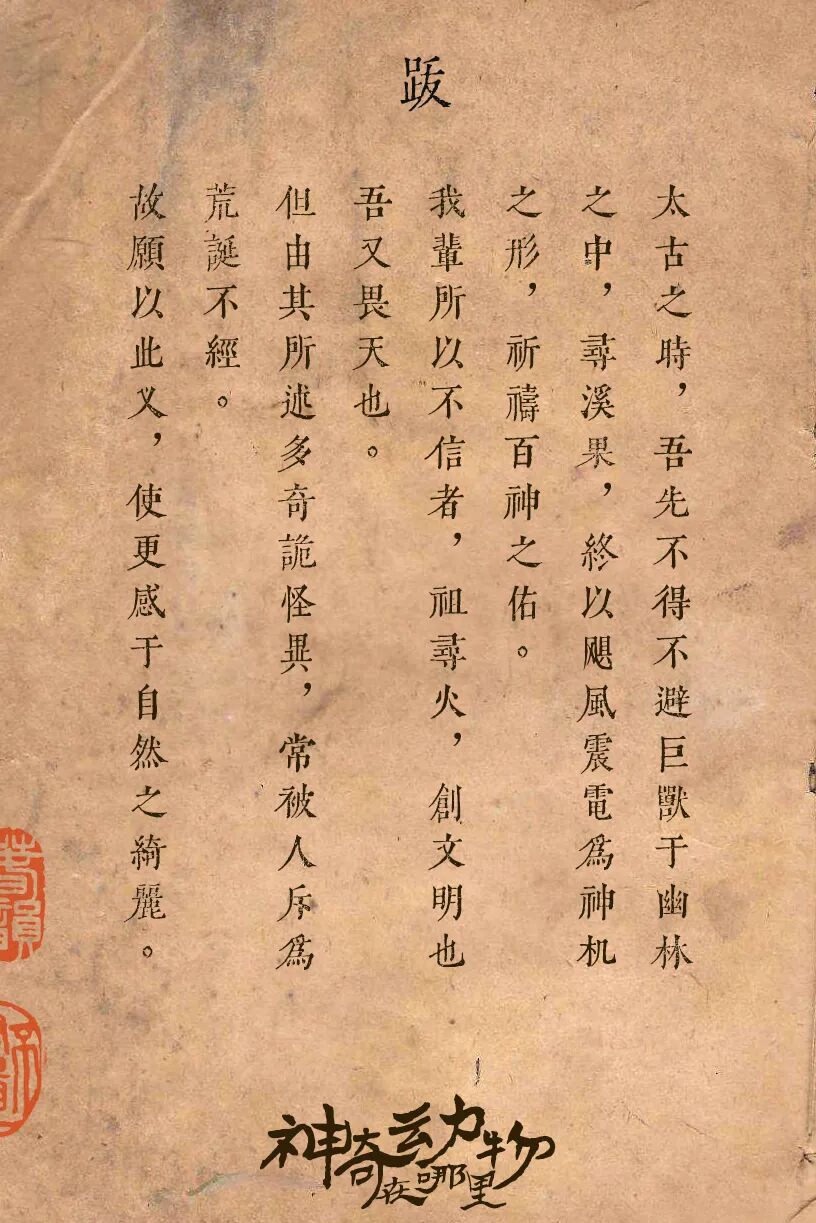 跋
太古之時，吾先不得不避巨獸于幽林
之中，尋溪果，終以颶風震電爲神机
之形，祈禱百神之佑。
我輩所以不信者，祖尋火，創文明也
吾又畏天也。
但由其所述多奇詭怪異，常被人斥爲
荒誕不經。
故願以此义，使更感于自然之綺麗。
神奇动物
在哪里